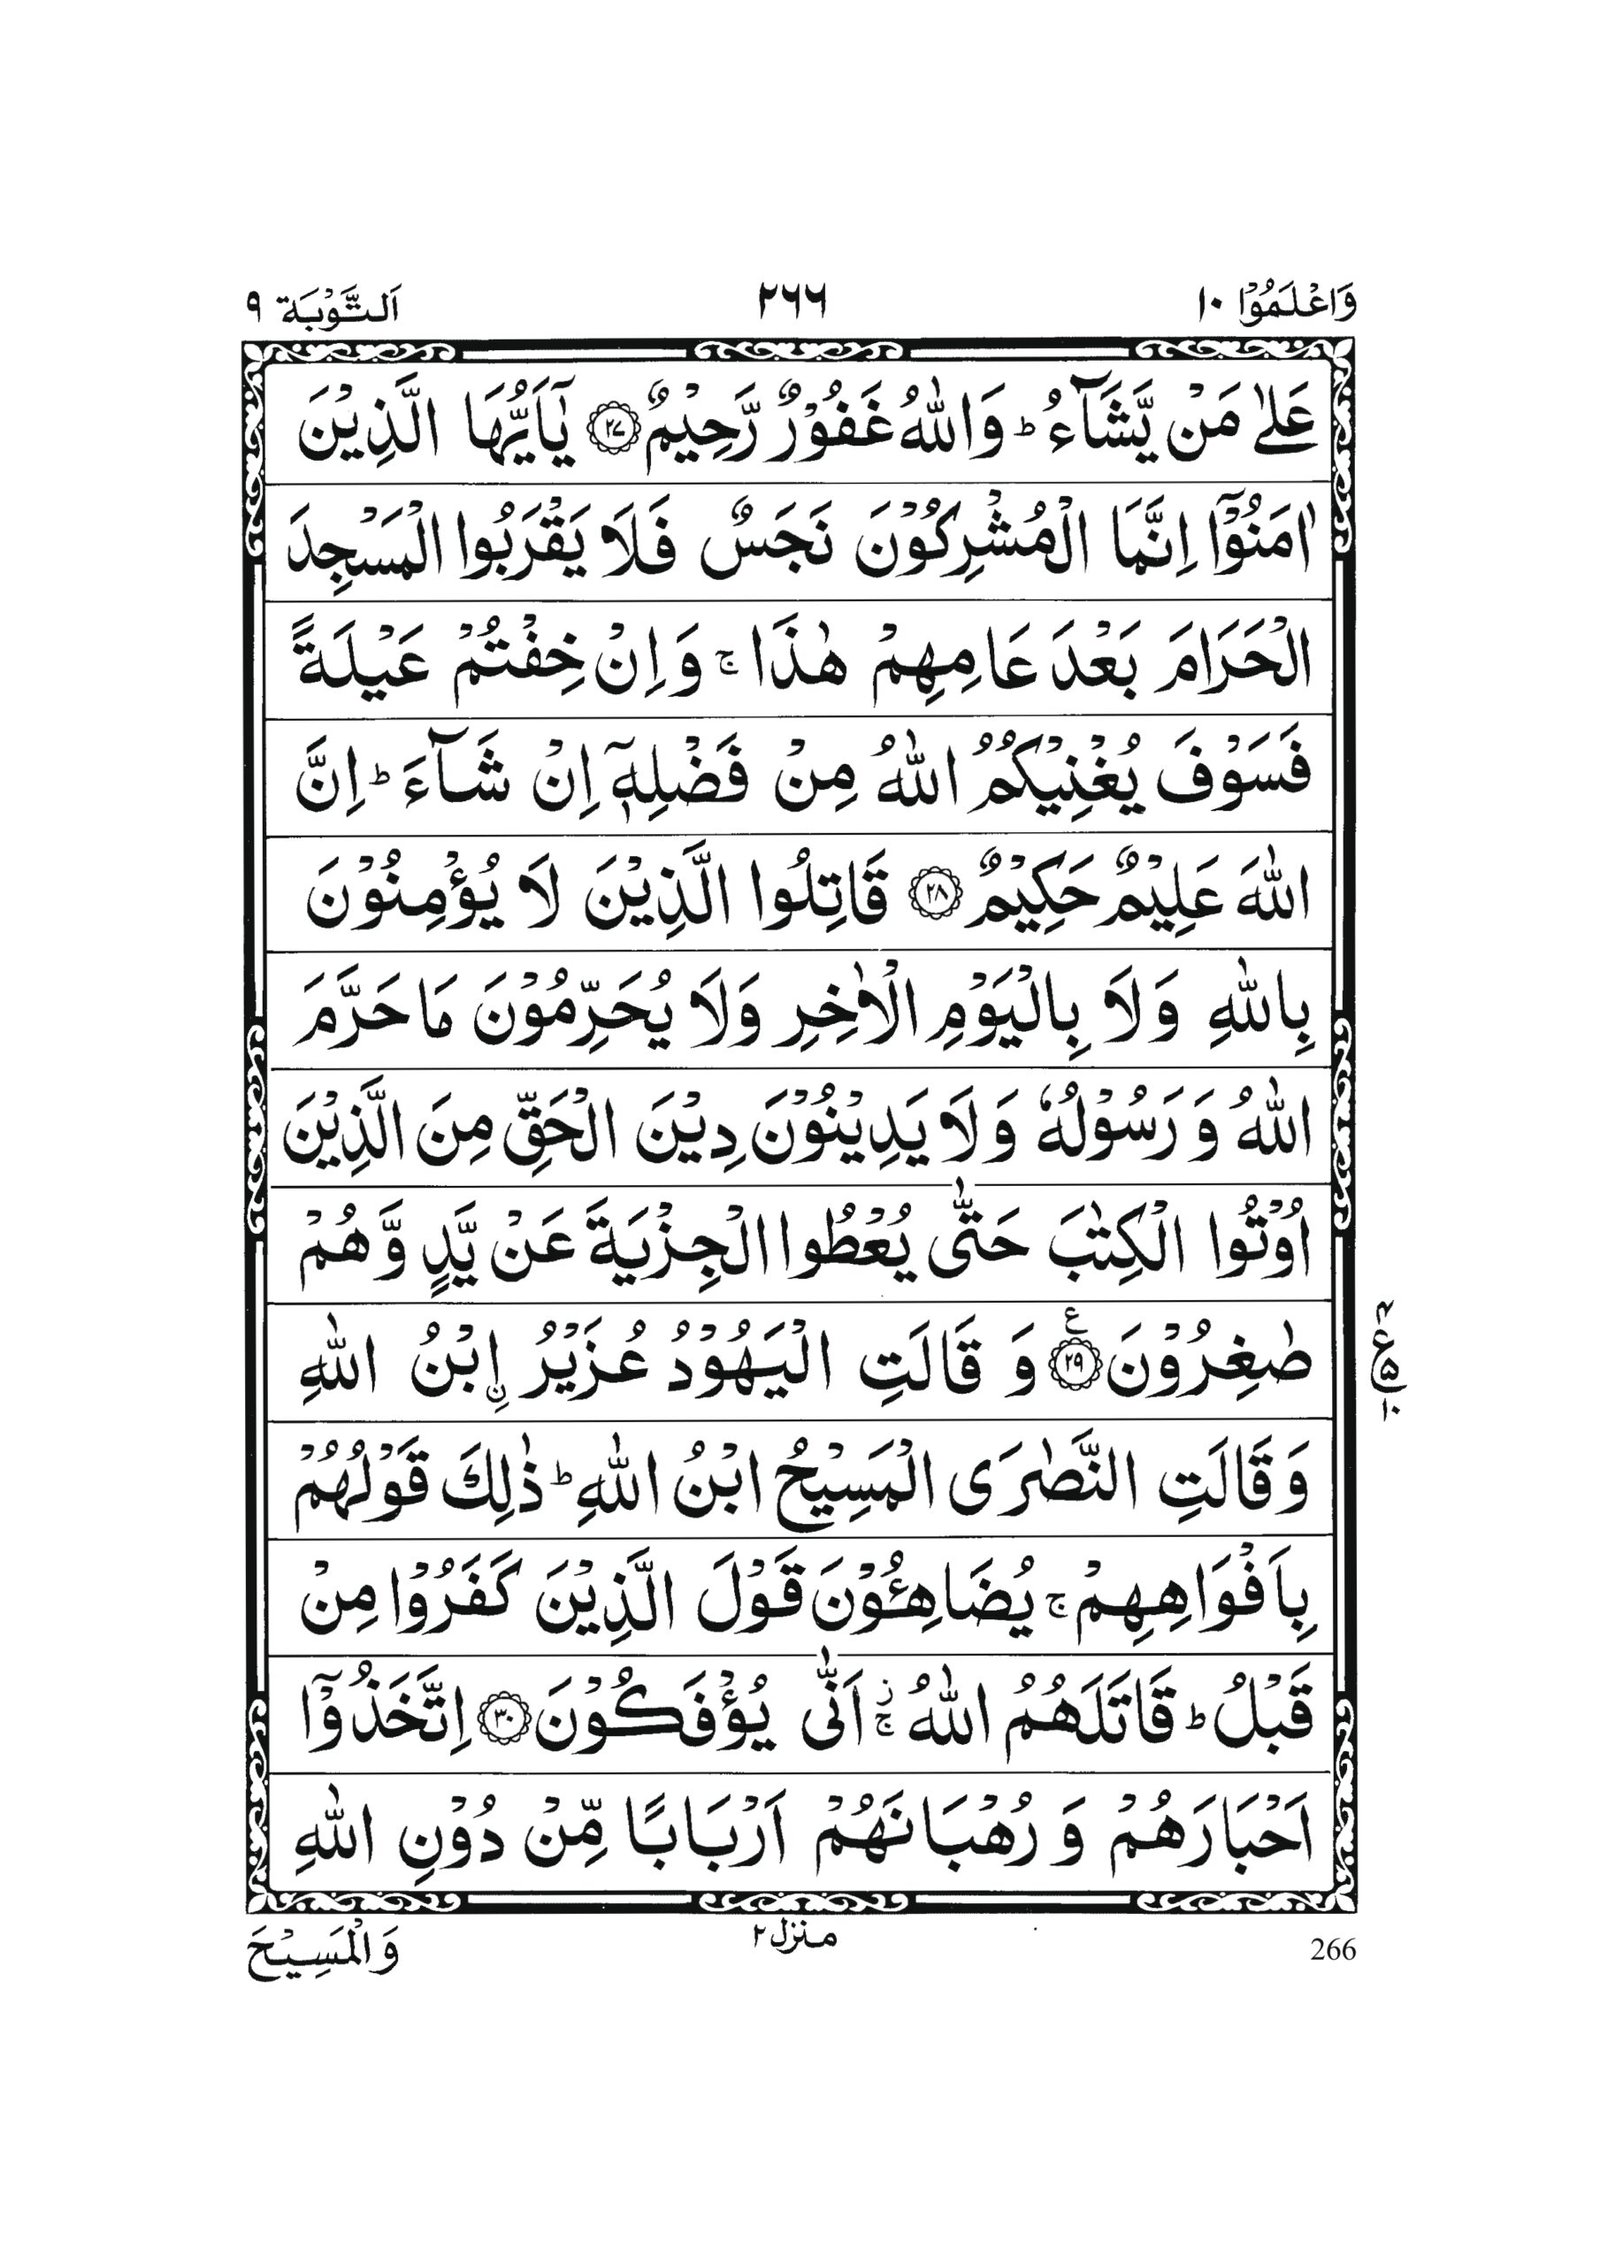 وَاعْلَمُوْۤا ١٠ ٢٦٦ اَلتَّوْبَة ٩
عَلٰى مَنْ يَّشَآءُ ؕ وَاللّٰهُ غَفُوْرٌ رَّحِيْمٌ ﴿٢٧﴾ يٰۤاَيُّهَا الَّذِيْنَ
اٰمَنُوْۤا اِنَّمَا الْمُشْرِكُوْنَ نَجَسٌ فَلَا يَقْرَبُوا الْمَسْجِدَ
الْحَرَامَ بَعْدَ عَامِهِمْ هٰذَا ۚ وَاِنْ خِفْتُمْ عَيْلَةً
فَسَوْفَ يُغْنِيْكُمُ اللّٰهُ مِنْ فَضْلِهٖۤ اِنْ شَآءَ ؕ اِنَّ
اللّٰهَ عَلِيْمٌ حَكِيْمٌ ﴿٢٨﴾ قَاتِلُوا الَّذِيْنَ لَا يُؤْمِنُوْنَ
بِاللّٰهِ وَلَا بِالْيَوْمِ الْاٰخِرِ وَلَا يُحَرِّمُوْنَ مَا حَرَّمَ
اللّٰهُ وَرَسُوْلُهٗ وَلَا يَدِيْنُوْنَ دِيْنَ الْحَقِّ مِنَ الَّذِيْنَ
اُوْتُوا الْكِتٰبَ حَتّٰى يُعْطُوا الْجِزْيَةَ عَنْ يَّدٍ وَّهُمْ
صٰغِرُوْنَ ﴿٢٩﴾ ع وَقَالَتِ الْيَهُوْدُ عُزَيْرُ ۨابْنُ اللّٰهِ
٤ ع ٥ ١٠
وَقَالَتِ النَّصٰرَى الْمَسِيْحُ ابْنُ اللّٰهِ ؕ ذٰلِكَ قَوْلُهُمْ
بِاَفْوَاهِهِمْ ۚ يُضَاهِئُوْنَ قَوْلَ الَّذِيْنَ كَفَرُوْا مِنْ
قَبْلُ ؕ قَاتَلَهُمُ اللّٰهُ ۚ ز اَنّٰى يُؤْفَكُوْنَ ﴿٣٠﴾ اِتَّخَذُوْۤا
اَحْبَارَهُمْ وَرُهْبَانَهُمْ اَرْبَابًا مِّنْ دُوْنِ اللّٰهِ
266 منزل ٢ وَالْمَسِيْحَ